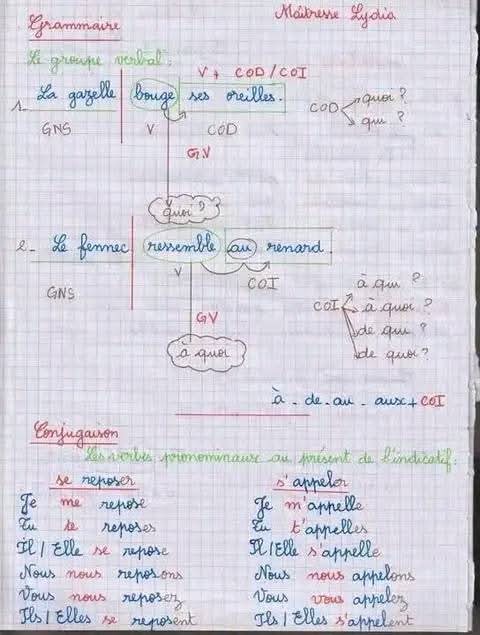 Grammaire
Maîtresse Lydia
Le groupe verbal:
V + COD/COI
1_ La gazelle bouge ses oreilles.
COD quoi ?
qui ?
GNS V COD
GV
quoi ?
2_ Le fennec ressemble au renard.
V
COI
GNS
GV
à quoi
COI à qui ?
à quoi ?
de qui ?
de quoi ?
à - de - au - aux + COI
Conjugaison
Les verbes pronominaux au présent de l'indicatif:
se reposer s'appeler
Je me repose Je m'appelle
Tu te reposes Tu t'appelles
Il / Elle se repose Il/Elle s'appelle
Nous nous reposons Nous nous appelons
Vous nous reposez Vous vous appelez
Ils / Elles se reposent Ils / Elles s'appelent